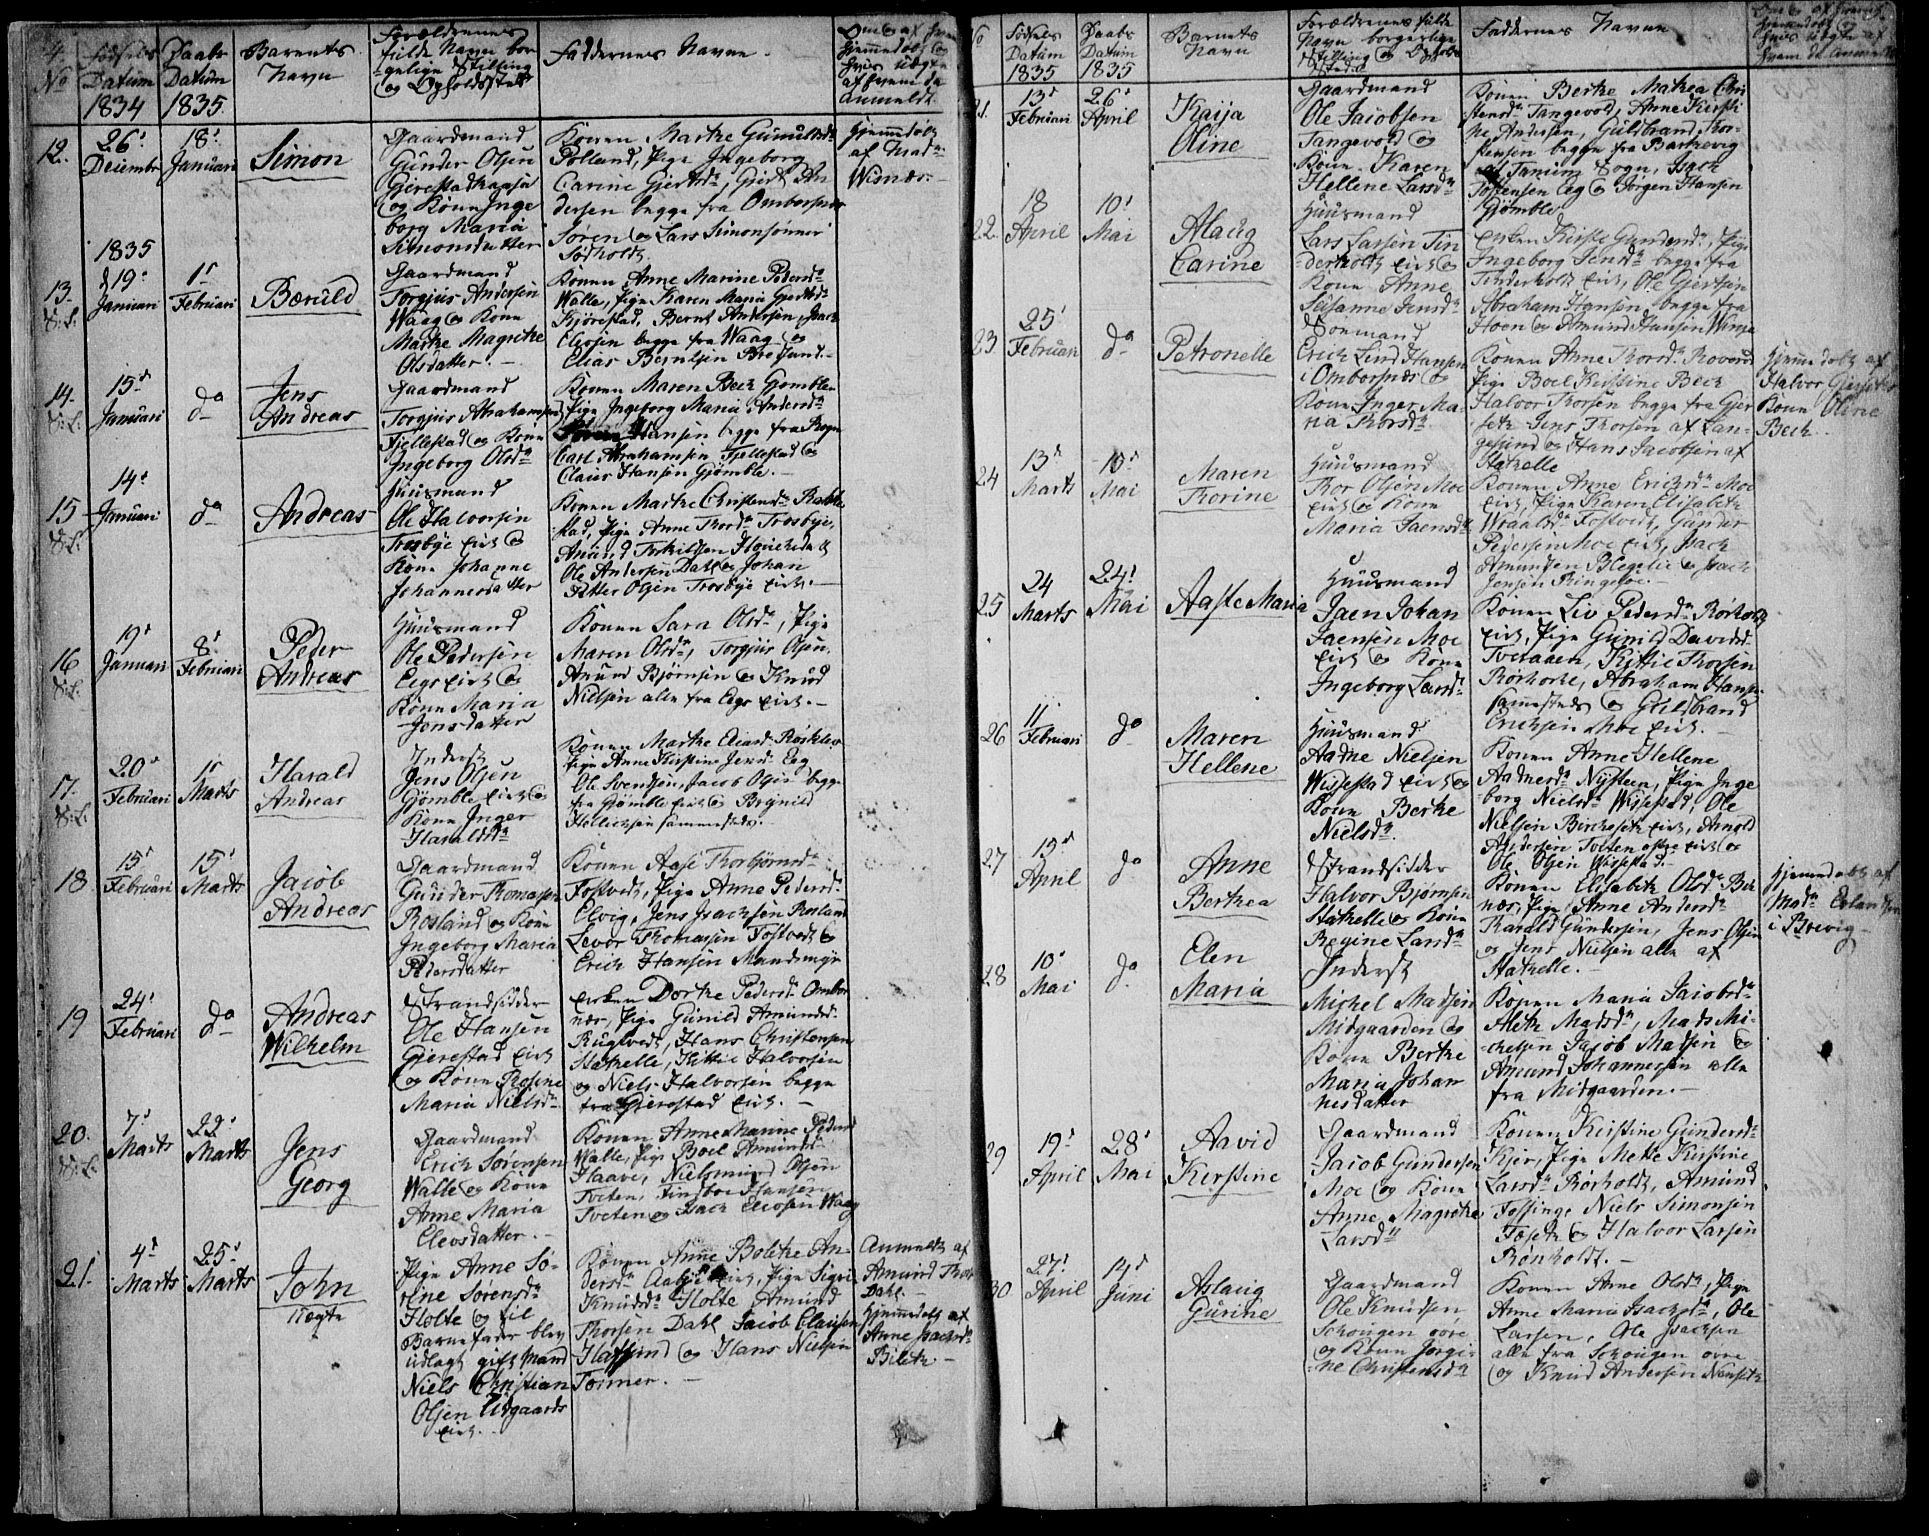 4
No
Fødsels
Datum
1834
Daabs
Datum
1835.
Barnets
Navn
Forældrenes
fulde Navn bor
gerlige Stilling
og Opholdssted
Faddernes Navne.
Om B. af hvem
hjemmedøbt og
hvis uægte
af hvem de
Anmeldt.
12.
26'
Decembr
18'
Januari
Simon
Gaardmand
Gunder Olsen
Gierestadhausen
og Kone Inge
borg Maria
Simonsdatter
Konen Marthe Gunulfsd.
Polland, Pige Ingeborg
Carine Giertsd., Giert An
dersen begge fra Ombersnæs
Søren og Lars Simonsønner
Sødholt.
Hjemmedøbt
af Mad.
Wisnæs.
1835
13.
d 19'
Januari
1'
Februari
Bæruld
Gaardmand
Torgius Andersen
Waag og Kone
Marthe Magrethe
Olsdatter.
Konen Anne Marine Pedersd.
Walle, Pige Karen Maria Giertsd.
Kjørestad, Bernt Andersen, Isach
Eliesen begge fra Waag og
Elias Berntsen Brosund.
14.
15'
Januari
do
Jens
Andreas
Gaardmand
Torgius Abrahamsen
Fjellestad og Kone
Ingeborg Olsd.
Konen Maren Bech Gjømble
Pige Ingeborg Maria Andersd.
Hansen begge fra
Carl Abrahamsen Fjellestad og
Claus Hansen Gjømble.
15
14'
Januari
do
Andreas
Huusmand
Ole Halvorsen
Trosbye Eie og
Kone Johanne
Johannesdatter
Konen Marthe Christensd.
Pige Anne Thorsd. Trosbye,
Amund Terkildsen
Ole Andersen Dahl og Johan
Petter Olsen Trosbye Eie.
16
19'
Januari
8'
Februari
Peder
Andreas
Huusmand
Ole Pedersen
Eegs Eie og
Kone Maria
Jensdatter
Konen Sara Olsd., Pige
Maren Olsd., Torgius Olsen,
Anund Bjørnsen og Knud
Nielsen alle fra Eegs Eie.
17.
20'
Februari
1'
Marts
Harald
Andreas
Inderst
Jens Olsen
Gjømble Eie og
Kone Inger
Haraldsd.
Konen Marthe Eliasd.
Pige Anne Kirstine Jensd. Eeg
Ole Svendsen, Jacob Olsen begge
fra Gjømble Eie og Brynild
Hellichsen sammesteds.
18
15'
Februari
15'
Marts
Jacob
Andreas
Gaardmand
Gunder Thomassen
Rosland og Kone
Ingeborg Maria
Pedersdatter
Konen Aase Thorbjørnsd.
Fostvedt, Pige Anne Pedersd.
Elvig, Jens Isachsen Rosland
Levor Thomassen Fostvedt og
Erich Hansen Mandsmyr
19
24'
Februari
do
Andreas
Wilhelm
Strandsidder
Ole Hansen
Gierestad Eie
og Kone Rosine
Maria Nielsd.
Enken Dorthe Pedersd. Ombor
næs, Pige Gunild Amundsd.
Rugtvedt, Hans Christensen
Stathelle, Kittil Halvorsen
og Niels Halvorsen begge
fra Gierestad Eie.
20.
7'
Marts
22'
Marts
Jens
Georg
Gaardmand
Erich Sørensen
Walle og Kone
Anne Maria
Eliosdatter.
Konen Anne Marine Peders
Walle, Pige Boel Amundsd.
Haave, Olsen
Tveten, Hansen
Tveten og Isach Eliosen Waag
21.
4'
Marts
25'
Marts
John
uægte
Pige Anne Sø-
rine Sørensd.
Holte og til
Barnefader blev
udlagt gift Mand
Niels Christian
Olsen Udgaards
Eie.
Konen Anne Bolethe An-
dersd. Aabye Eie, Pige Sigri
Knudsd. Holte Amund
Thorsen Dahl Jacob Clausen
Haffsund og Hans Nielsen
Tormer.
Anmeldt af
Amund Thor
Dahl.
Hjemmedøbt af
Anne Isachsd.
Bileth
No
Fødsels
Datum
1835
Daabs
Datum
1835
Barnets
Navn
Forældrenes fulde
Navn borgerlige
Stilling og Opholds
Sted.
Faddernes Navne
21.
13'
Februari
26'
April
Kaija
Oline
Gaardmand
Ole Jacobsen
Tangevold og
Kone Karen
Hellene Larsd.
Konen Berthe Mathea Chri
stensd. Tangevold, Anne Kirsti
ne Andersen, Guldbrand Tor-
stensen begge fra Barthevig
af Tanum Sogn, Isach
Tostensen Eeg og Jørgen Hansen
Gjømble
22.
18
April
10'
Mai
Alaug
Carine
Huusmand
Lars Larsen Tin
derholt Eie og
Kone Anne
Susanne Jensd.
Enken Kirsti Gundersd., Pige
Ingeborg Jensd. begge fra
Tinderholt Eie, Ole Giertsen
Abraham Hansen begge fra
Hoen og Amund Hansen
23
25'
Februari
do
Petronelle
Soemand
Erich Lind Hansen
i Ombersnæs og
Kone Inger Ma-
ria Thorsd.
Konen Anne Thorsd. Rovord
Pige Boel Kirstine Bech
Halvor Thorsen begge fra Gjer
seth Jens Thorsen af Lan-
gesund og Hans Jacobsen af
Stathelle
Hjemmedøbt af
Halvor Gjersets
Kone Oline
Bech.
24
13'
Marts
10'
Mai
Maren
Thorine
Huusmand
Thor Olsen Moe
Eie og Kone
Maria Jaensd.
Konen Anne Erichsd. Moe
Eie, Pige Karen Elisabeth
Wraalsd. Fostvedt, Gunder
Pedersen Moe Eie, Isach
Amundsen Blegelie og Isach
Jensen Ringsøe.
25
24
Marts
24'
Mai
Aaste Maria
Huusmand
Jaen Johan
Jaensen Moe
Eie og Kone
Ingeborg Larsd.
Konen Liv Pedersd. Rørholt
Eie, Pige Gunild Davidsd.
Tvetaaen, Kittil Thorsen
Rørholt, Abraham Hans
sammesteds og Gulbrand
Erichsen Moe Eie.
26
11
Februari
do
Maren
Hellene
Huusmand
Aadne Nielsen
Wissestad Eie og
Kone Berthe
Nielsd.
Konen Anne Hellene
Aadnesd. Nysteen, Pige Inge
borg Nielsd. Wissestad, Ole
Nielsen Bircheseth Eie, Arnold
Andersen Tveten østre Eie og
Ole Olsen Wissestad.
27
15'
April
do
Anne
Berthea
Strandsidder
Halvor Bjørnsen
Stathelle og Kone
Regine Larsd.
Konen Elisabeth Olsd.
næs, Pige Anne Andersd.
Harald Gundersen, Jens Olsen
og Jens Nielsen alle af
Stathelle.
Hjemmedøbt af
Mad. Erlandsen
i Brevig
28
10'
Mai
do
Elen
Maria
Inderst
Michel Madsen
Midgaarden og
Kone Berthe
Maria Johan
nesdatter
Konen Maria Jacobsd.
Aleth Madsd., Mads Mi-
chelsen Jacob Madsen og
Amund Johannesen alle
fra Midgaarden.
29
19'
April
28'
Mai
Aavid
Kirstine
Gaardmand
Jacob Gundersen
Moe og Kone
Anne Magrethe
Larsd.
Konen Kirstine Gundersd.
Kjer, Pige Mette Kirstine
Larsd. Rørholt, Amund
Fossing, Niels Simonsen
Foseth og Halvor Larsen
Rønholt.
30
27'
April
14'
Juni
Aslaug
Gurine
Gaardmand
Ole Knudsen
Schougen øvre
og Kone Jørgi-
ne Christensd.
Konen Anne Olsd., Pige
Anne Maria Isachsd., Ole
Larsen, Ole Isachsen
alle fra Schougen øvre
og Knud Andersen Nenseth